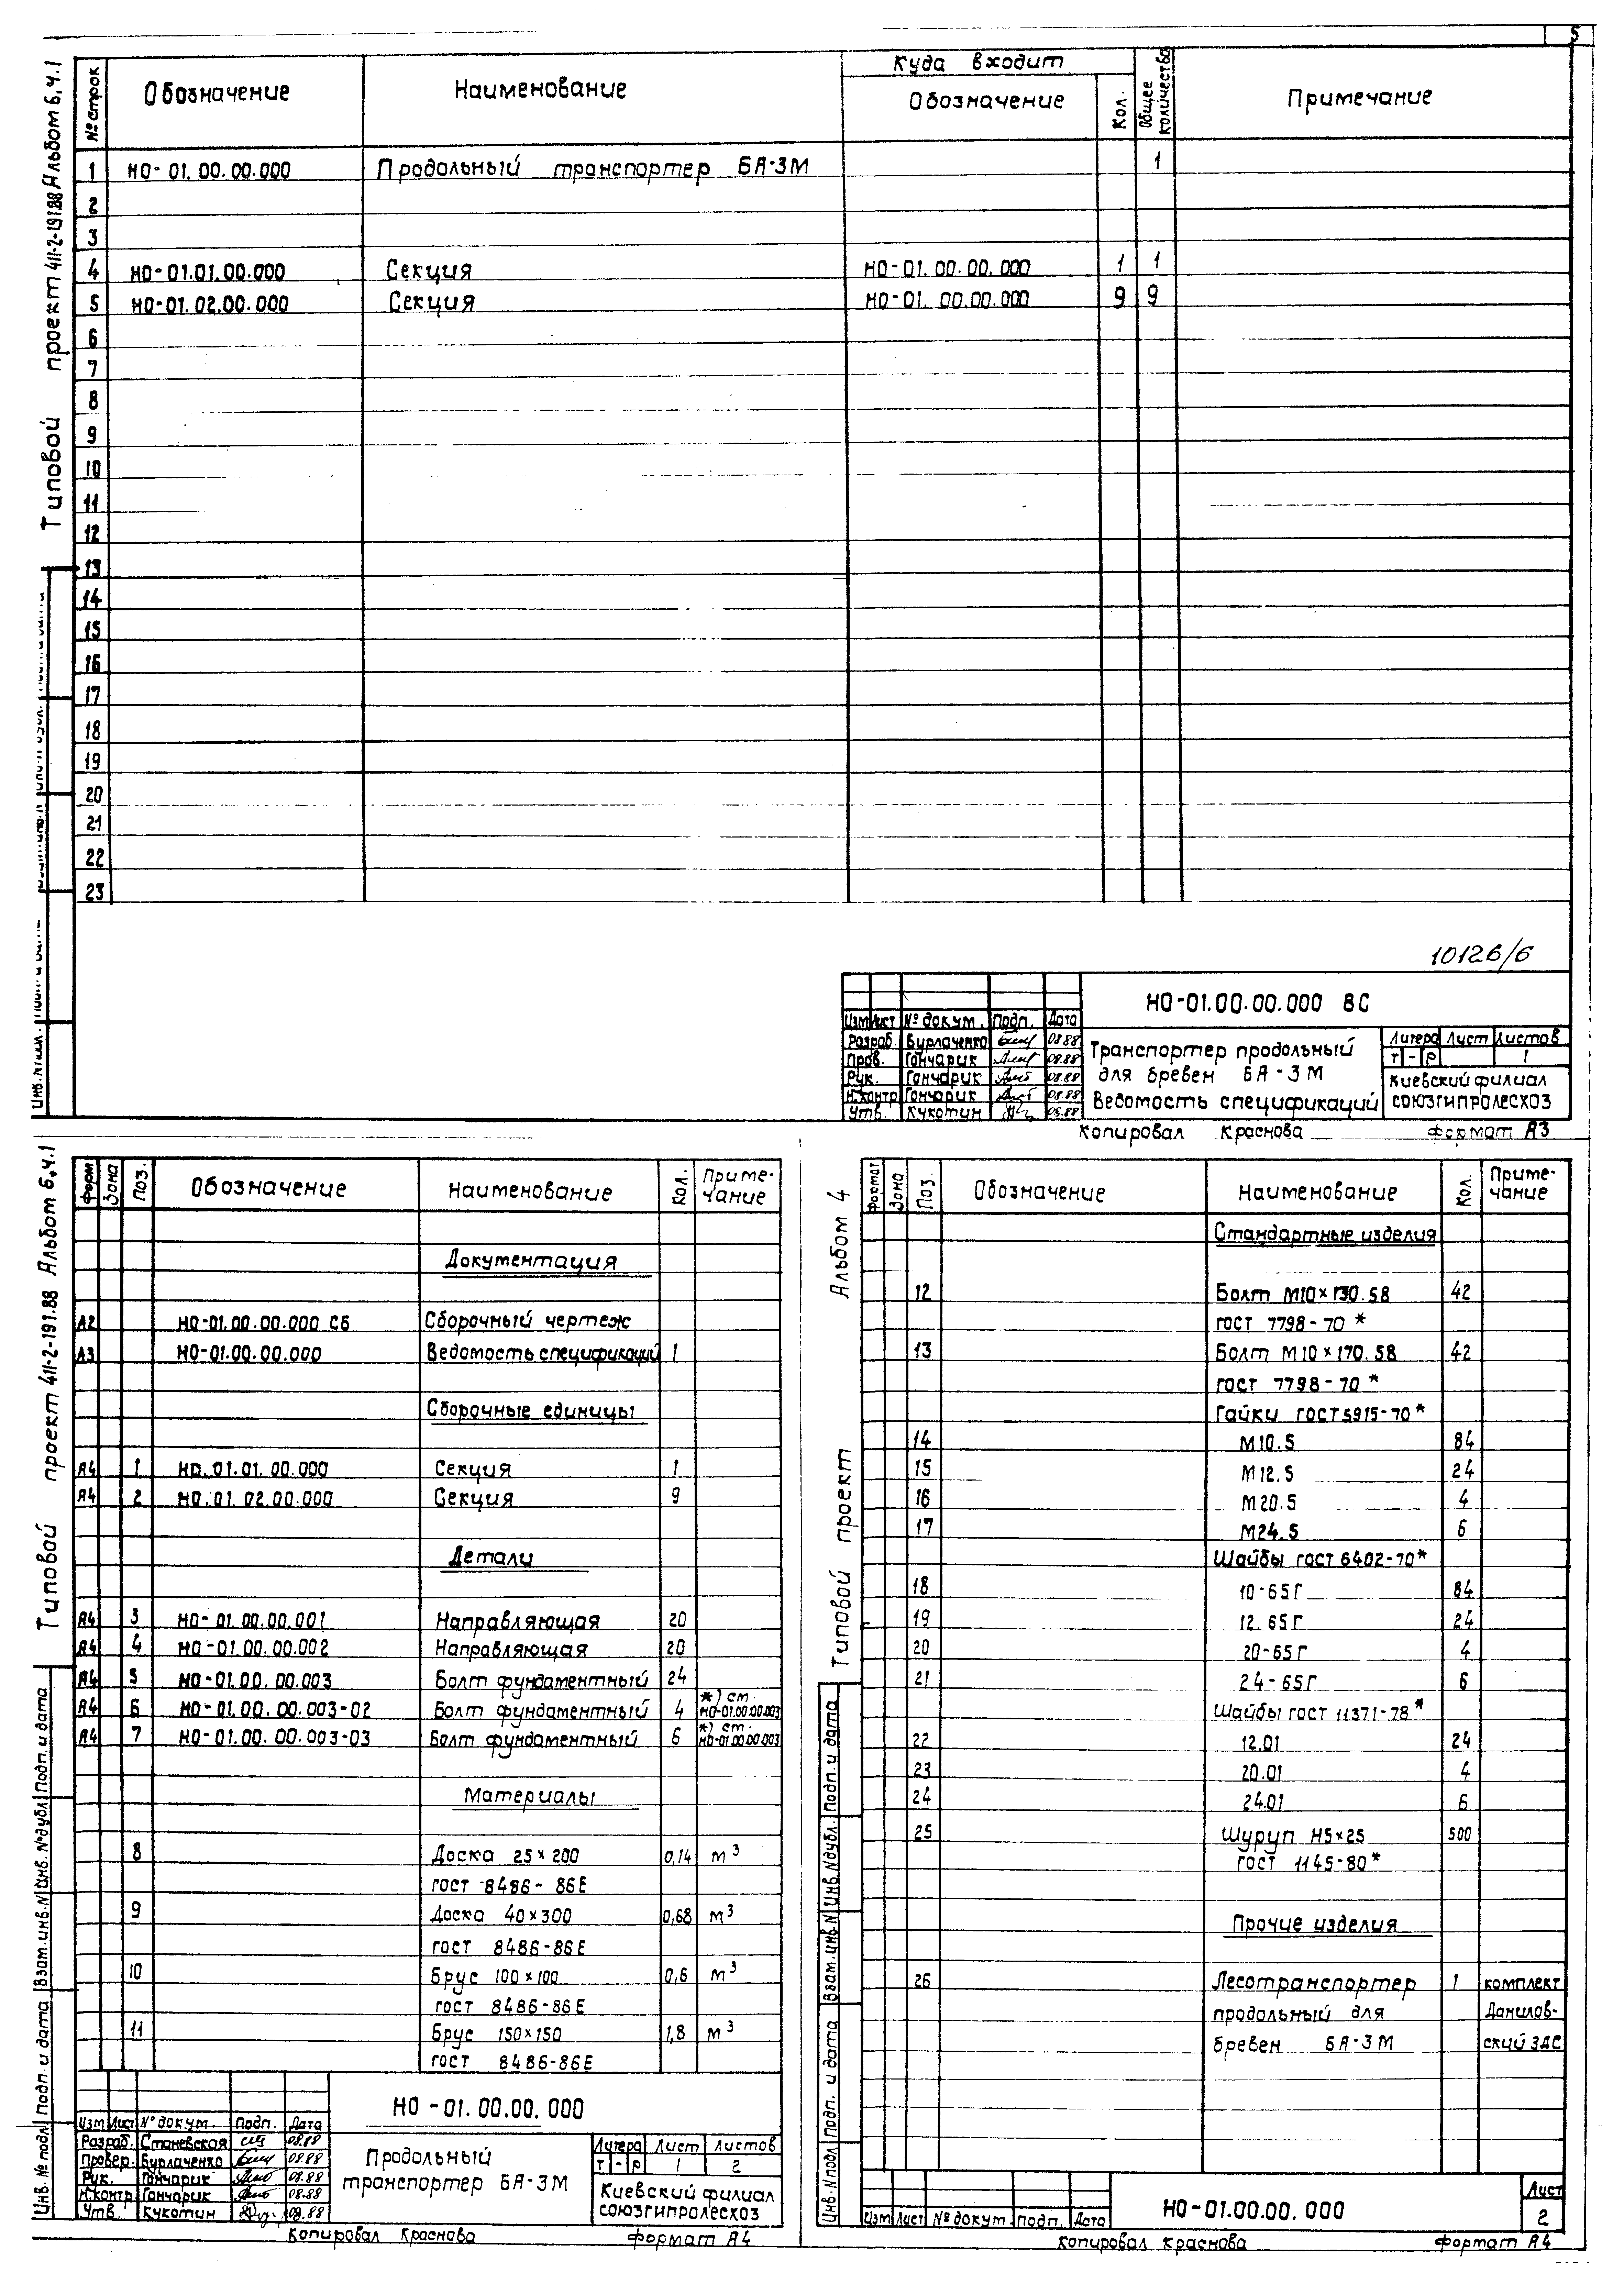 5
Типовой проект 411-2-191.88 Альбом 6, ч.1
№ строк Обозначение Наименование Куда входит Общее количество Примечание
Обозначение Кол.
1 НО-01.00.00.000 Продольный транспортер БА-3М 1
2
3
4 НО-01.01.00.000 Секция НО-01.00.00.000 1 1
5 НО-01.02.00.000 Секция НО-01.00.00.000 9 9
6
7
8
9
10
11
12
13
14
15
16
17
18
19
20
21
22
23
10126/6
НО-01.00.00.000 ВС
Изм Лист № докум. Подп. Дата
Разраб. Бурлаченко 08.88
Пров. Гончарик 08.88
Рук. Гончарик 08.88
Н.контр Гончарик 08.88
Утв. Кукотин 08.88
Транспортер продольный
для бревен БА-3М
Ведомость спецификаций
Литера Лист Листов
Т - Р 1
Киевский филиал
СОЮЗГИПРОЛЕСХОЗ
Копировал Краснова Формат А3
Типовой проект 411-2-191.88 Альбом 6, ч.1
Форм Зона Поз. Обозначение Наименование Кол. Приме-
чание
Документация
А2 НО-01.00.00.000 СБ Сборочный чертеж
А3 НО-01.00.00.000 Ведомость спецификаций 1
Сборочные единицы
А4 1 НО.01.01.00.000 Секция 1
А4 2 НО.01.02.00.000 Секция 9
Детали
А4 3 НО-01.00.00.001 Направляющая 20
А4 4 НО-01.00.00.002 Направляющая 20
А4 5 НО-01.00.00.003 Болт фундаментный 24
А4 6 НО-01.00.00.003-02 Болт фундаментный 4 *) см. НО-01.00.00.003
А4 7 НО-01.00.00.003-03 Болт фундаментный 6 *) см. НО-01.00.00.003
Материалы
8 Доска 25×200 0,14 м³
гост 8486-86Е
9 Доска 40×300 0,68 м³
гост 8486-86Е
10 Брус 100×100 0,6 м³
гост 8486-86Е
11 Брус 150×150 1,8 м³
гост 8486-86Е
Инв.№ подл Подп. и дата Взам.инв.№ Инв.№дубл Подп. и дата
НО-01.00.00.000
Изм Лист № докум. Подп. Дата
Разраб. Станевская 08.88
Провер. Бурлаченко 08.88
Рук. Гончарик 08.88
Н.контр Гончарик 08.88
Утв. Кукотин 08.88
Продольный
транспортер БА-3М
Литера Лист Листов
Т - Р 1 2
Киевский филиал
СОЮЗГИПРОЛЕСХОЗ
Копировал Краснова Формат А4
Типовой проект Альбом 4
Формат Зона Поз. Обозначение Наименование Кол. Приме-
чание
Стандартные изделия
12 Болт М10×130.58 42
гост 7798-70*
13 Болт М10×170.58 42
гост 7798-70*
Гайки гост 5915-70*
14 М10.5 84
15 М12.5 24
16 М20.5 4
17 М24.5 6
Шайбы гост 6402-70*
18 10-65Г 84
19 12.65Г 24
20 20-65Г 4
21 24-65Г 6
Шайбы гост 11371-78*
22 12.01 24
23 20.01 4
24 24.01 6
25 Шуруп Н5×25 500
гост 1145-80*
Прочие изделия
26 Лесотранспортер 1 комплект
продольный для Данилов-
бревен БА-3М ский ЗДС
Инв.№подл Подп. и дата Взам.инв.№ Инв.№дубл. Подп. и дата
Изм Лист № докум Подп. Дата
НО-01.00.00.000
Лист
2
Копировал Краснова Формат А4